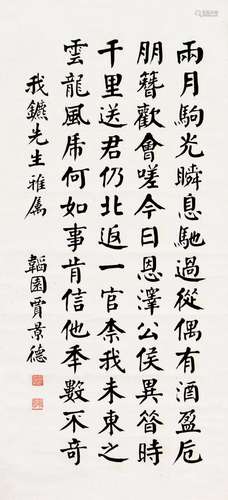 兩月駒光瞬息馳過從偶有酒盈卮
朋簪歡會嗟今日恩澤公侯異昔時
千里送君仍北返一官柰我未東之
雲龍風虎何如事肯信他秊數不奇
我鑣先生雅屬
韜園賈景德